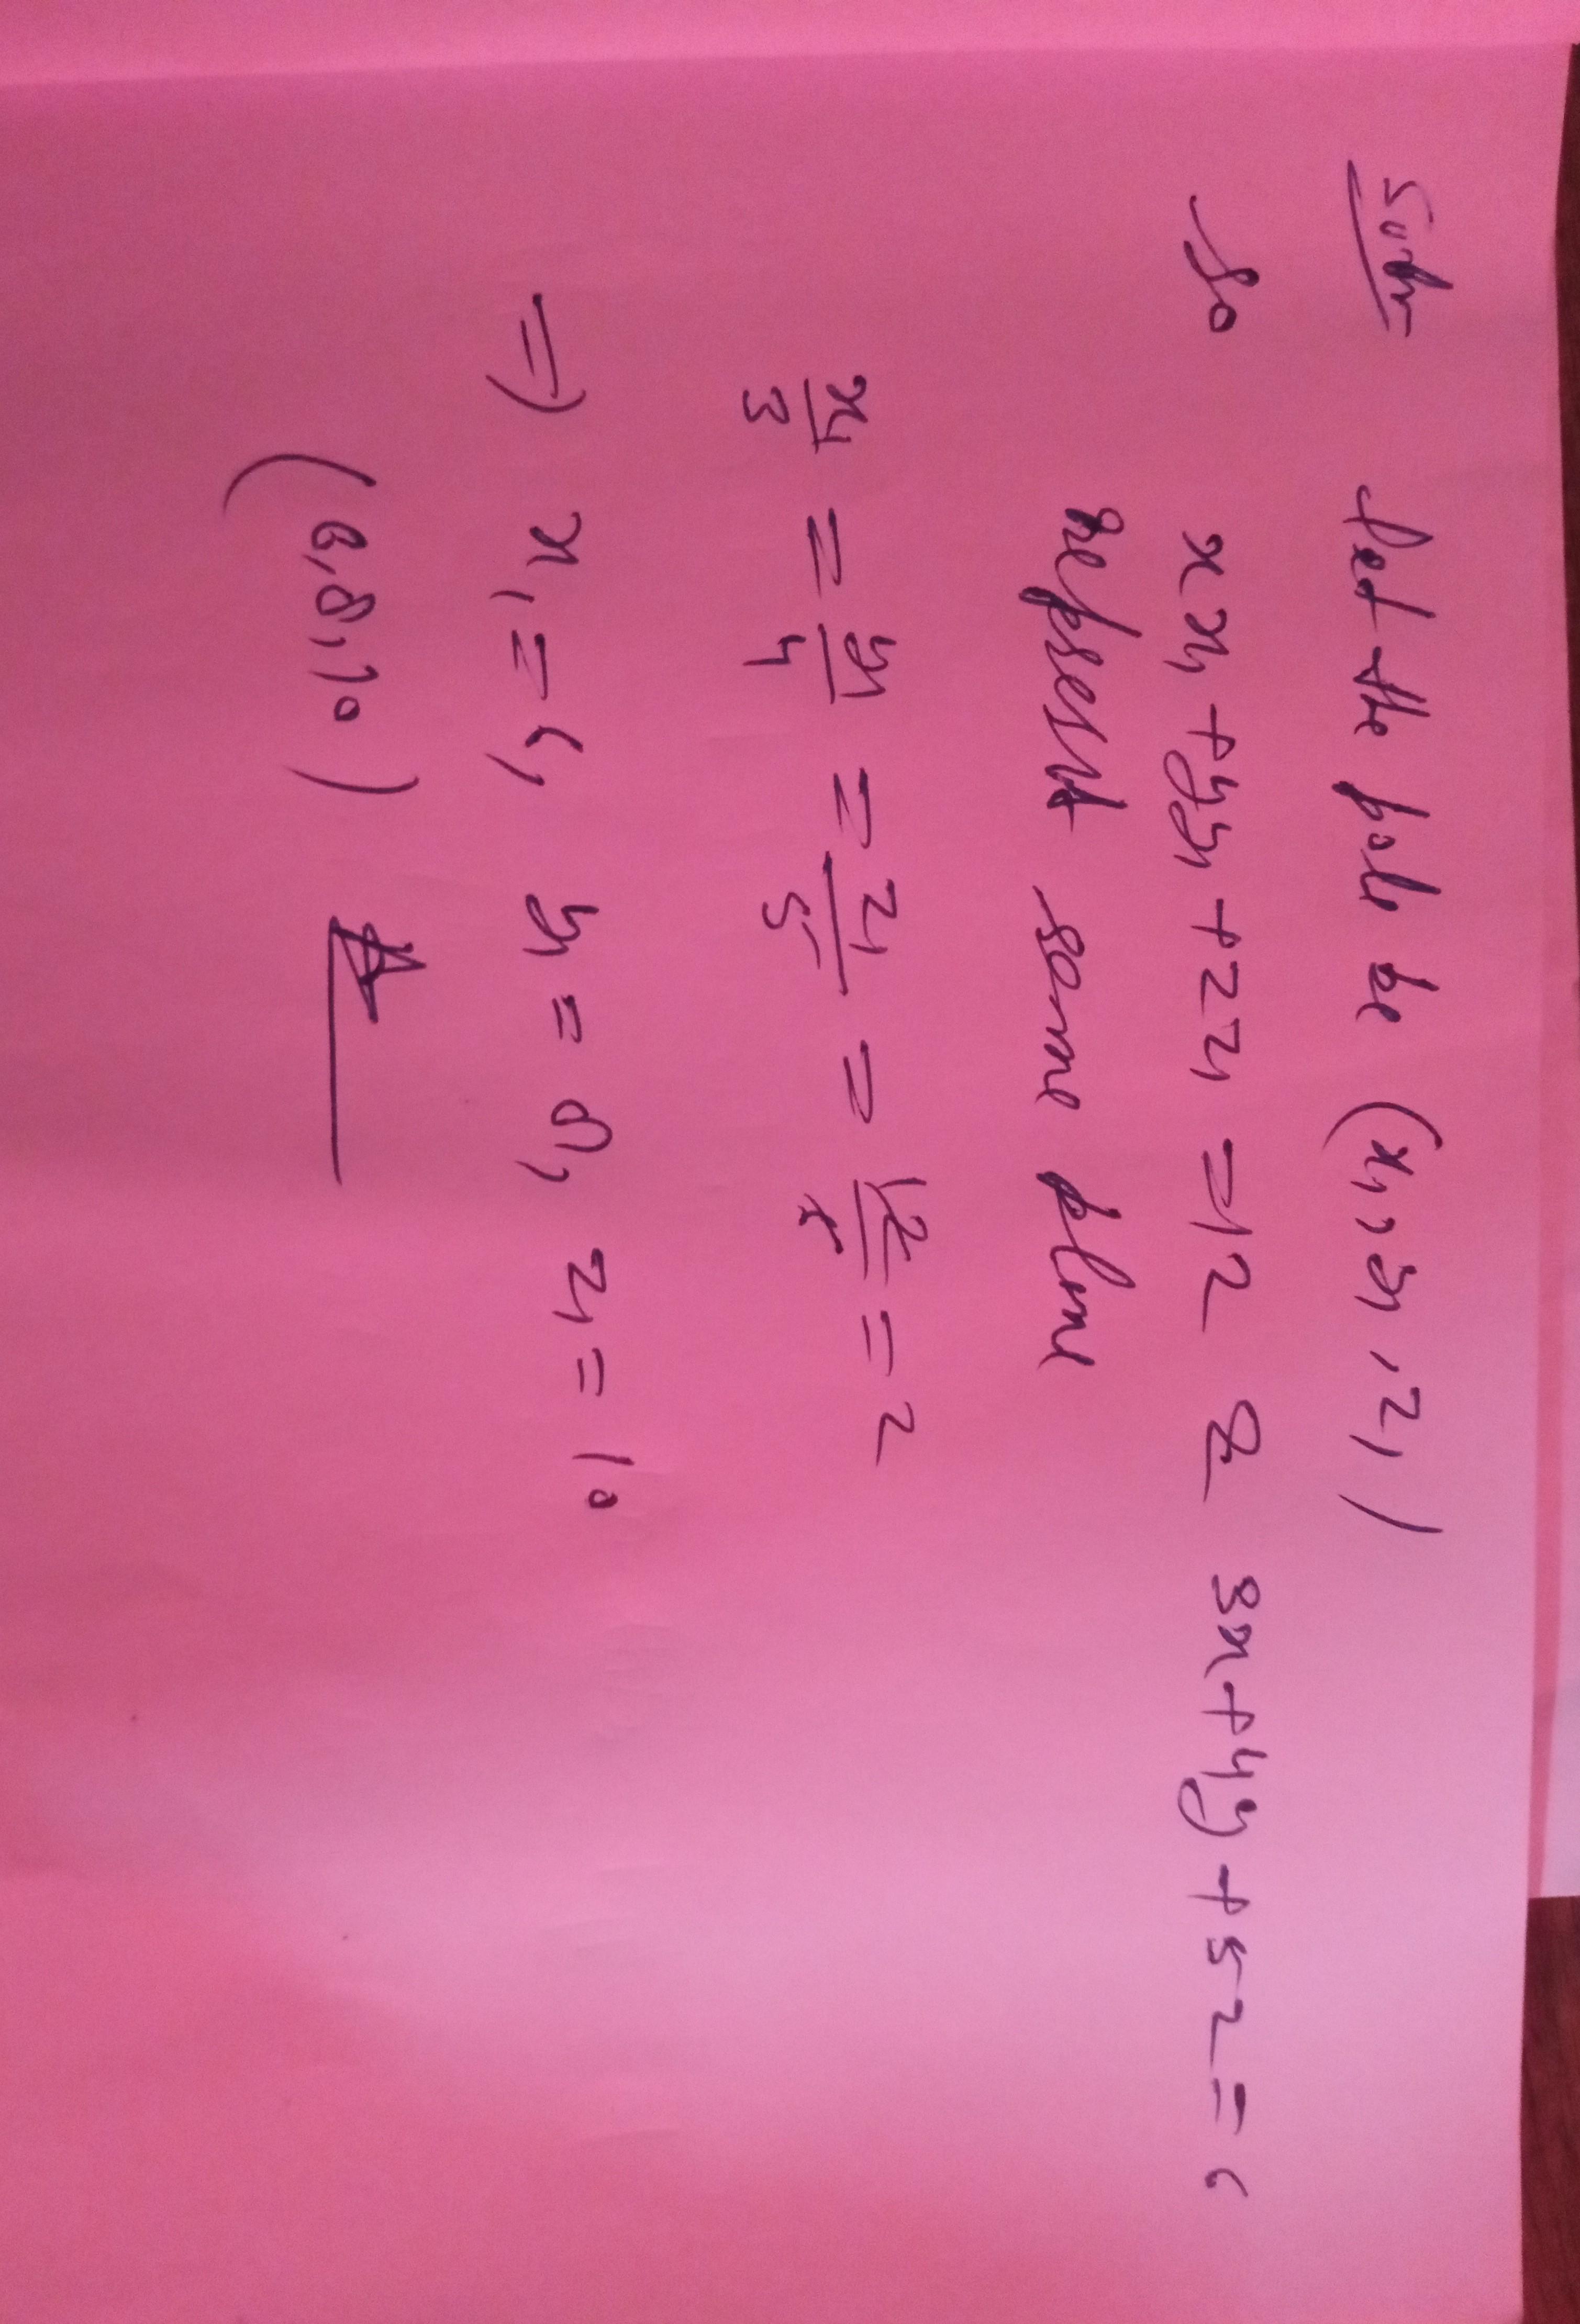 Soln Let the pole be (x₁, y₁, z₁)
So xx₁ + yy₁ + zz₁ = 12 & 3x + 4y + 5z = 6
represent same plane
x₁/3 = y₁/4 = z₁/5 = 12/6 = 2
⇒ x₁ = 6, y₁ = 8, z₁ = 10
(6, 8, 10)